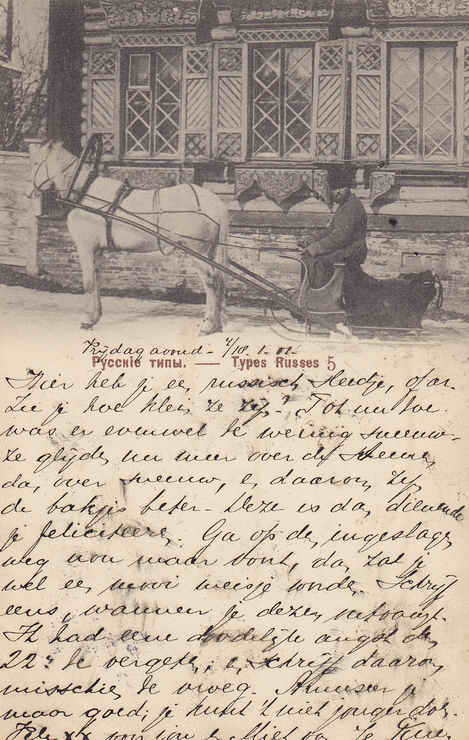 Vrijdagavond - 1/18. 1. 01.
Русскіе типы. — Types Russes 5
Hier heb je ee russisch sleedje, of ar.
Zie je hoe klein ze zijn? Tot nu toe
was er evenwel te weinig sneeuw.
Ze glijden nu meer over de steenen
dan over sneeuw, en daarom zijn
de bakjes beter. Deze is dan dienende
je feliciteere. Ga op den ingeslagen
weg nou maar voort, dan zal je
wel een mooi meisje worden. Schrijf
eens, wanneer je deze ontvangt.
Ik had eene doodelijke angst den
22e te vergeten, en schrijf daarom
misschien te vroeg. Amuseer je
maar goed; je kunt 't niet
xx voor jou